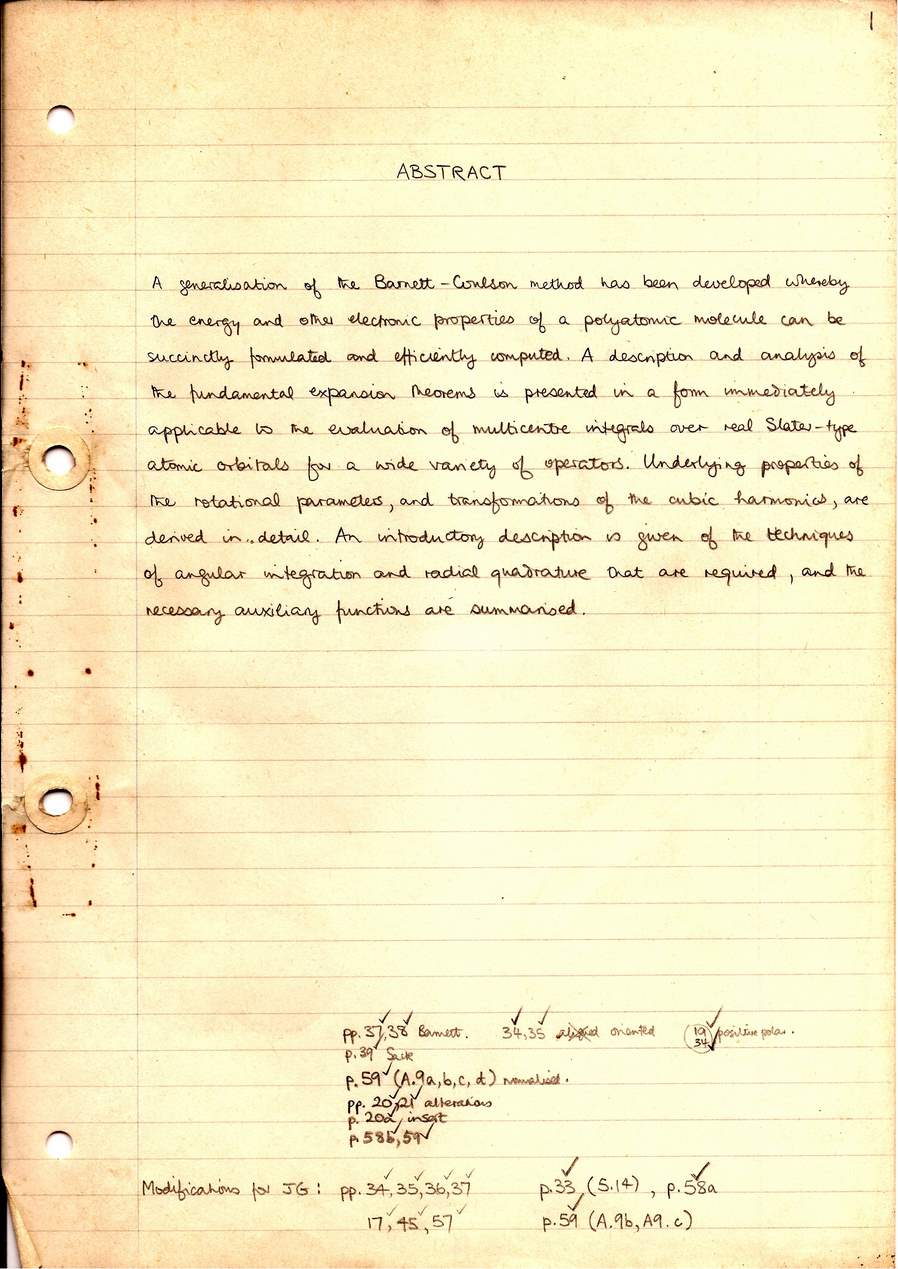 1
ABSTRACT
A generalisation of the Barnett-Coulson method has been developed whereby
the energy and other electronic properties of a polyatomic molecule can be
succinctly formulated and efficiently computed. A description and analysis of
the fundamental expansion theorems is presented in a form immediately
applicable to the evaluation of multicentre integrals over real Slater-type
atomic orbitals for a wide variety of operators. Underlying properties of
the rotational parameters, and transformations of the cubic harmonics, are
derived in detail. An introductory description is given of the techniques
of angular integration and radial quadrature that are required, and the
necessary auxiliary functions are summarised.
pp. 37, 38 Barnett. 34, 35 aligned oriented 19 34 positive polar.
p. 39 Sack
p. 59 (A.9a, b, c, d) normalised.
pp. 20, 21 alterations
p. 20a, insert
p. 58b, 59
Modifications for JG: pp. 34, 35, 36, 37 p. 33 (5.14), p. 58a
17, 45, 57 p. 59 (A.9b, A9.c)